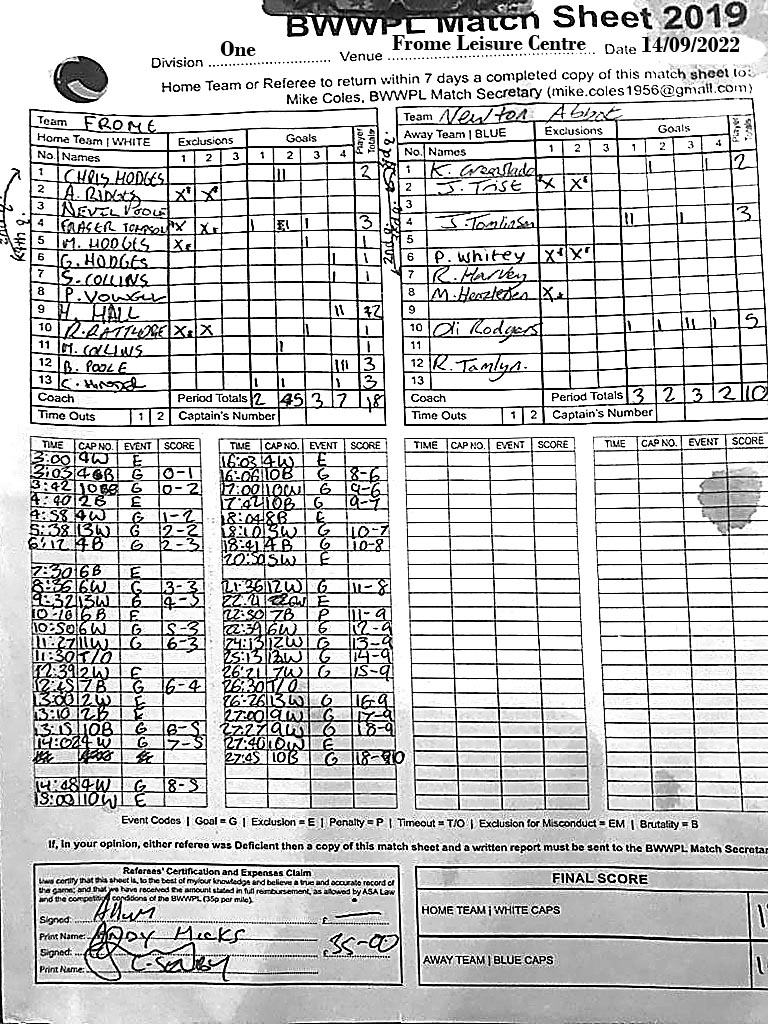 BWWPL Match Sheet 2019
Division One Venue Frome Leisure Centre Date 14/09/2022
Home Team or Referee to return within 7 days a completed copy of this match sheet to:
Mike Coles, BWWPL Match Secretary (mike.coles1956@gmail.com)
Team FROME
Home Team | WHITE Exclusions Goals Player Totals
No. Names 1 2 3 1 2 3 4
1 CHRIS HODGES 11 2
2 A. RIDGES X X
3 NEVIL POOLE
4 FRASER X X 1 1 1 3
5 M. HODGES X 1 1
6 G. HODGES 1 1
7 S. COLLINS 1 1
8 P.
9 H. HALL 11 2
10 R. X X 1 1
11 M. COLLINS 1 1
12 B. POOLE 111 3
13 C. 1 1 1 3
Coach Period Totals 2 3 7 18
Time Outs 1 2 Captain's Number
Team Newton Abbot
Away Team | BLUE Exclusions Goals Player Totals
No. Names 1 2 3 1 2 3 4
1 K. 1 1 2
2 J. Trist X X
3
4 J. Tomlinson 11 1 3
5
6 P. Whitey X X
7 R. Harvey
8 M. X
9
10 Oli Rodgers 1 1 11 1 5
11
12 R. Tamlyn.
13
Coach Period Totals 3 2 3 2 10
Time Outs 1 2 Captain's Number
TIME CAP NO. EVENT SCORE
3:00 4W E
3:03 4B G 0-1
3:42 10B G 0-2
4:40 2B E
4:58 4W G 1-2
5:38 13W G 2-2
6:17 4B G 2-3
7:30 6B E
8:36 6W G 3-3
9:32 13W G 4-3
6B E
10:50 6W G 5-3
11:27 11W G 6-3
11:30 T/O
12:39 2W E
12:45 7B G 6-4
13:00 2W E
13:10 2B E
13:15 10B G 6-5
14:02 4W G 7-5
14:48 4W G 8-5
15:00 10W E
TIME CAP NO. EVENT SCORE
16:03 4W E
16:06 10B G 8-6
17:00 10W G 9-6
17:42 10B G 9-7
18:04 8B E
18:10 5W G 10-7
18:41 4B G 10-8
20:50 5W E
21:36 12W G 11-8
E
22:30 7B P 11-9
22:39 6W G 12-9
24:13 12W G 13-9
25:13 12W G 14-9
26:21 7W G 15-9
26:30 T/O
26:26 13W G 16-9
27:00 9W G 17-9
27:27 9W G 18-9
27:40 10W E
27:45 10B G 18-10
TIME CAP NO. EVENT SCORE
TIME CAP NO. EVENT SCORE
Event Codes | Goal = G | Exclusion = E | Penalty = P | Timeout = T/O | Exclusion for Misconduct = EM | Brutality = B
If, in your opinion, either referee was Deficient then a copy of this match sheet and a written report must be sent to the BWWPL Match Secretar
Referees' Certification and Expenses Claim
I/we certify that this sheet is, to the best of my/our knowledge and believe a true and accurate record of
the game; and that we have received the amount stated in full reimbursement, as allowed by ASA Law
and the competition conditions of the BWWPL (35p per mile).
Signed: £ —
Print Name: ANDY HICKS
Signed: £ 35-00
Print Name:
FINAL SCORE
HOME TEAM | WHITE CAPS 1
AWAY TEAM | BLUE CAPS 1